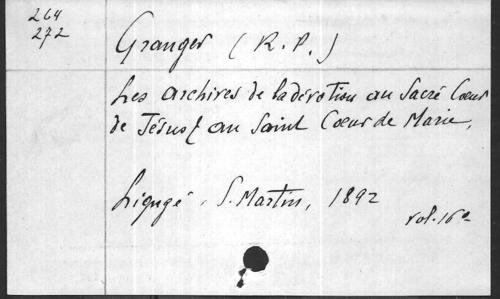 264
272
Granger (R.P.)
Les archives de la dévotion au Sacré Cœur
de Jésus & au Saint Cœur de Marie,
Ligugé, S. Martin, 1892
vol. 16º